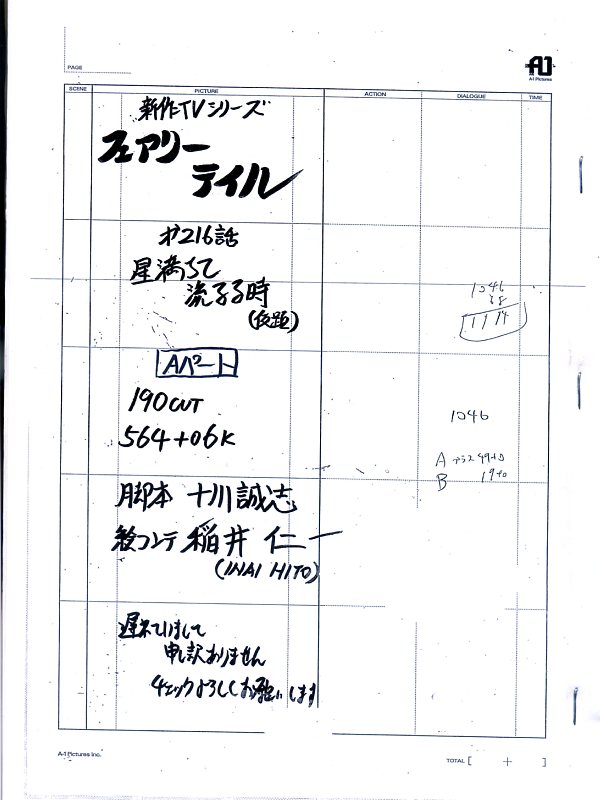 PAGE
A-1 Pictures
SCENE PICTURE ACTION DIALOGUE TIME
新作TVシリーズ
フェアリー
テイル
オ216話
星満ちて
流るる時
(仮題)
1046
68
1114
Aパート
190CUT
564+06K
1046
A プラス 49+0
B 19+0
脚本 十川誠志
絵コンテ 稲井 仁一
(INAI HITO)
遅れていまして
申し訳ありません
チェックよろしくお願いします
A-1 Pictures Inc.
TOTAL [ + ]